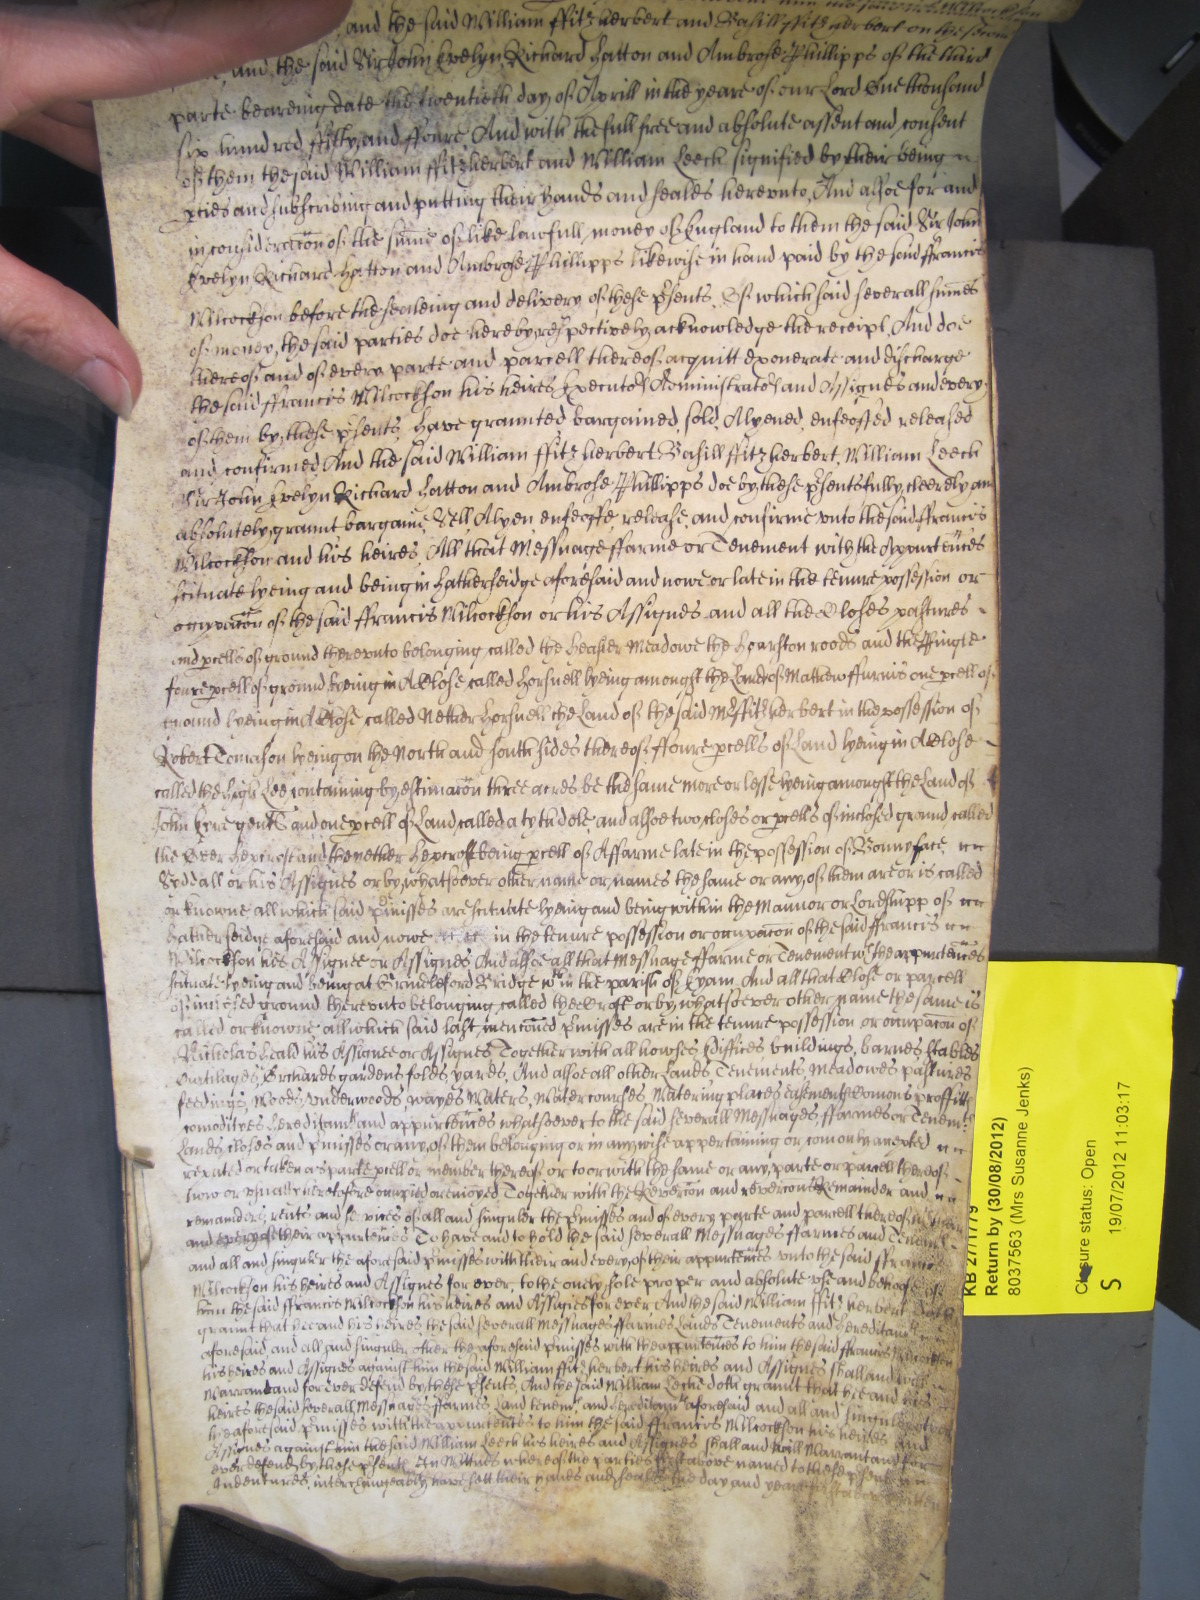 and the said William ffitzherbert and Basill ffitzherbert on the second
and the said Sir John Evelyn Richard Hatton and Ambrose Phillipps of the third
parte beareing date the twentieth day of Aprill in the yeare of our Lord One thousand
six hundred ffifty and ffoure And with the full free and absolute assent and consent
of them the said William ffitzherbert and William Leeck signified by their being
pties and subscribing and putting their hands and seales herevnto, And alsoe for and
in consideracōn of the sūme of like lawfull money of England to them the said Sir John
Evelyn Richard Hatton and Ambrose Phillipps likewise in hand paid by the said ffrancis
Wilcockson before the sealeing and delivery of these p̄sents, Of which said severall sūmes
of money, the said parties doe hereby respectively acknowledge the receipt And doe
thereof and of every parte and parcell thereof acquitt exonerate and discharge
the said ffrancis Wilcockson his heires Executors Administrators and Assignes and every
of them by these p̄sents, Have graunted bargained, sold, Alyened, enfeoffed released
and confirmed And the said William ffitzherbert Basill ffitzherbert, William Leeck
Sir John Evelyn Richard Hatton and Ambrose Phillipps doe by these p̄sents fully, cleerely an
absolutely graunt bargaine, Sell Alyen enfeoffe, release, and confirme vnto the said ffrancis
Wilcockson and his heires, All that Messuage ffarme or Tenement with the Appurtēnces
scituate lyeing and being in Hatherseidge aforesaid and nowe or late in the tenure possession or
occupacōn of the said ffrancis Wilcockson or his Assignes and all the Closes pastures
and pcells of ground therevnto belonging called the Heasler Meadowe the Hourston roods and the Pingle
foure pcells of ground lyeing in A Close called Horsnell lyeing amongst the Land of Mathew ffurnis one pcell of
ground lyeing in A Close called Nether Horsnell the Land of the said Mr ffitzherbert in the possession of
Robert Tomason lyeing on the North and South sides thereof, ffoure pcells of Land lyeing in A Close
called the High Lee, containing by estimacōn three acres be the same more or lesse lyeing amongst the Land of
John Eyre gent and one pcell of Land called a tyth dole, and alsoe two closes or pcells of inclosed ground called
the Over Heycroft and the nether Heycroft being pcell of A ffarme late in the possession of Bonnyface
Siddall or his Assignes or by whatsoever other name or names the same or any of them are or is called
or knowne all which said p̄misses are scituate lyeing and being within the Mannor or Lordshipp of
Hatherseidge aforesaid and nowe in the tenure possession or occupacōn of the said ffrancis
Wilcockson his Assignee or Assignes And alsoe all that Messuage ffarme or Tenement wth the appurtēnces
scituate lyeing and being at Grindleford Bridge wthin the parish of Eyam And all that Close or parcell
of inclosed ground therevnto belonging called the or by whatsoever other name the same is
called or knowne all which said last mencōned p̄misses are in the tenure possession or occupacōn of
Nicholas Heald his Assignee or Assignes Together with all howses Ediffices buildings, barnes stables
Curtilages, Orchards gardens folds, yards, And alsoe all other Lands, Tenements, Meadowes pastures
feedings, Woods, Vnderwoods, wayes Waters, Watercourses, Watering places easements Comons proffitts
comodityes hereditamts and appurtēnces whatsoever to the said severall Messuages, ffarmes or Tenemts
Lands, closes and p̄misses or any of them belonging or in any wise appertaining or comonly accepted
reputed or taken as parte pcell or member thereof or to or with the same or any parte or parcell thereof
now or vsually heretofore occupied or enioyed Together with the Revercōn and revercōns Remainder and
remainders, rents and services of all and singuler the p̄misses and of every parte and parcell thereof
and every of their appurtēnces To have and to hold the said severall Messuages ffarmes and Tenemts
and all and singuler the aforesaid p̄misses with their and every of their appurtēnces vnto the said ffrancis
Wilcockson his heires and Assignes for ever, to the onely sole proper and absolute vse and behoofe of
him the said ffrancis Wilcockson his heires and Assignes for ever And the said William ffitzherbert doth
graunt that hee and his heires, the said severall Messuages ffarmes Lands Tenements and Hereditamts
aforesaid and all and singuler other the aforesaid p̄misses with the appurtēnces to him the said ffrancis Wilcockson
his heires and Assignes against him the said William ffitzherbert his heires and Assignes shall and will
Warrant and for ever defend by these p̄sents, And the said William Leeke doth graunt that hee and his
heires the said severall Messuages ffarmes Land tenemts and hereditamts aforesaid and all and singuler other
the aforesaid p̄misses with the appurtēnces to him the said ffrancis Wilcockson his heires and
Assignes against him the said William Leeck his heires and Assignes shall and will Warrant and for
ever defend by these p̄sents In Witnes whereof the parties first above named to these p̄sent
Indentures, interchangeably have sett their hands and seales the day and yeare first above written
KB 27/1779
Return by (30/08/2012)
8037563 (Mrs Susanne Jenks)
Closure status: Open
S 19/07/2012 11:03:17